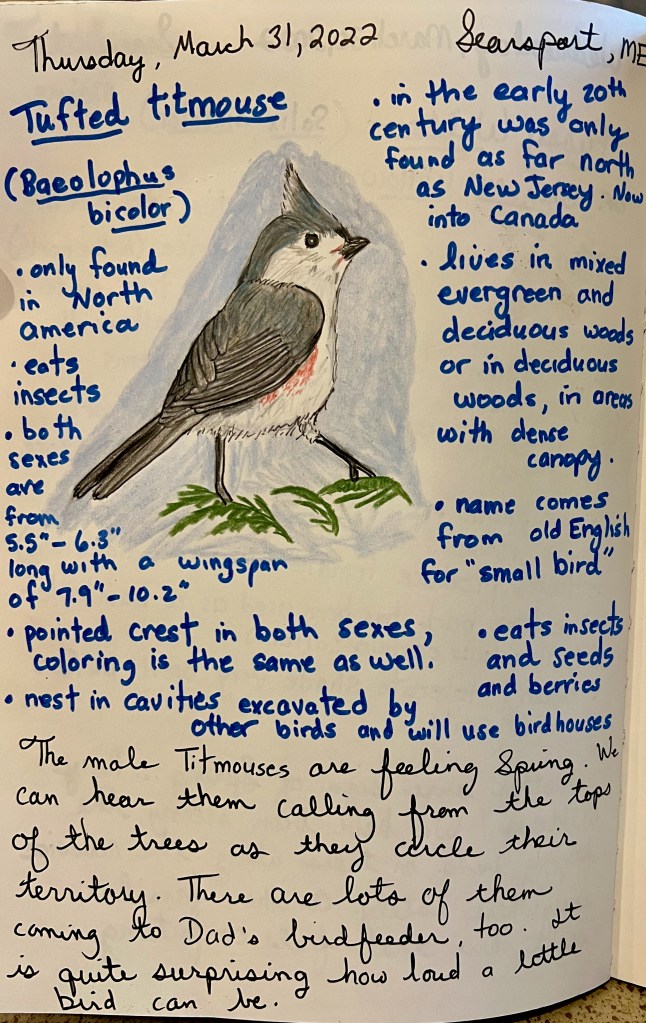 Thursday, March 31, 2022
Searsport, ME
Tufted titmouse
(Baeolophus
bicolor)
• only found
in North
america
• eats
insects
• both
sexes
are
from
5.5"- 6.3"
long with a wingspan
of 7.9"-10.2"
• in the early 20th
century was only
found as far north
as New Jersey. Now
into Canada
• lives in mixed
evergreen and
deciduous woods
or in deciduous
woods, in areas
with dense
canopy.
• name comes
from old English
for "small bird"
• pointed crest in both sexes,
coloring is the same as well.
• eats insects
and seeds
and berries
• nest in cavities excavated by
other birds and will use birdhouses
The male Titmouses are feeling Spring. We
can hear them calling from the tops
of the trees as they circle their
territory. There are lots of them
coming to Dad's birdfeeder, too. It
is quite surprising how loud a little
bird can be.